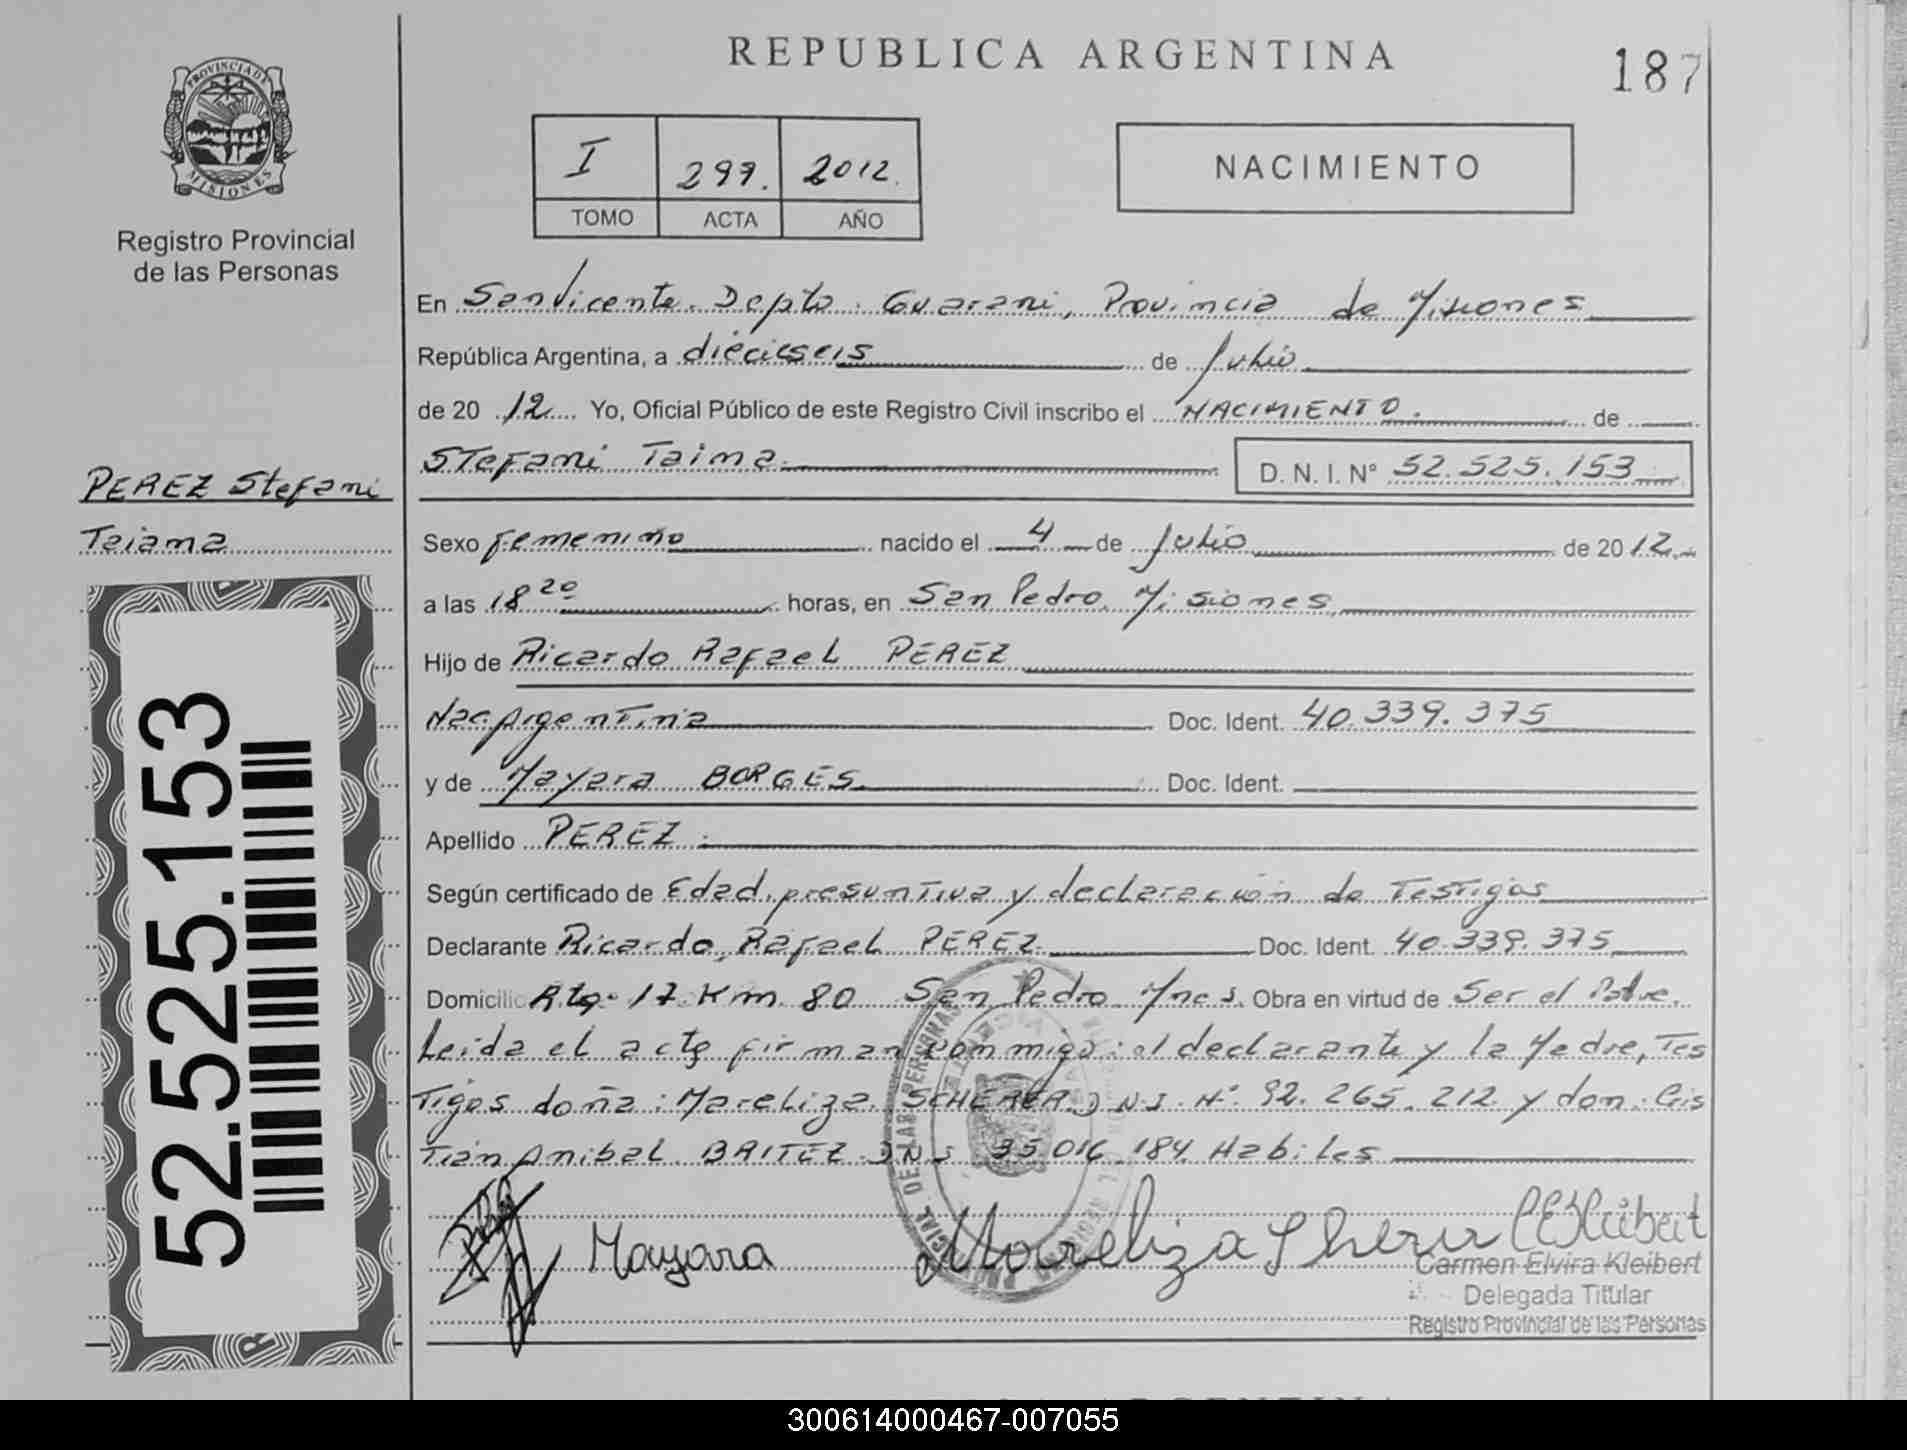 REPUBLICA ARGENTINA
187
PROVINCIA DE
MISIONES
Registro Provincial
de las Personas
I 297. 2012.
TOMO ACTA AÑO
NACIMIENTO
En San Vicente. Depto. Guarani, Provincia de Misiones
República Argentina, a dieciseis de Julio
de 2012 Yo, Oficial Público de este Registro Civil inscribo el NACIMIENTO. de
Stefani Taima D. N. I. N° 52.525.153
PEREZ Stefani
Taiama
Sexo Femenino nacido el 4 de Julio de 2012
a las 18 20 horas, en San Pedro Misiones
Hijo de Ricardo Rafael PEREZ
Nac. Argentina Doc. Ident. 40.339.375
y de Mayara BORGES Doc. Ident.
Apellido PEREZ
Según certificado de Edad presuntiva y declaración de Testigos
Declarante Ricardo Rafael PEREZ Doc. Ident. 40.339.375
Domicilio Rta. 17 Km 80 San Pedro Mnes. Obra en virtud de Ser el Padre.
Leida el acta firman conmigo: el declarante y la Madre, Tes
Tigos doña: Mareliza SCHERER D N I N° 92.265.212 y don: Cris
Tian Anibal BRITEZ D N I 35 016 184 Habiles
52.525.153
Mayara
Moreliza Sherer
CEKleibert
Carmen Elvira Kleibert
Delegada Titular
Registro Provincial de las Personas
300614000467-007055